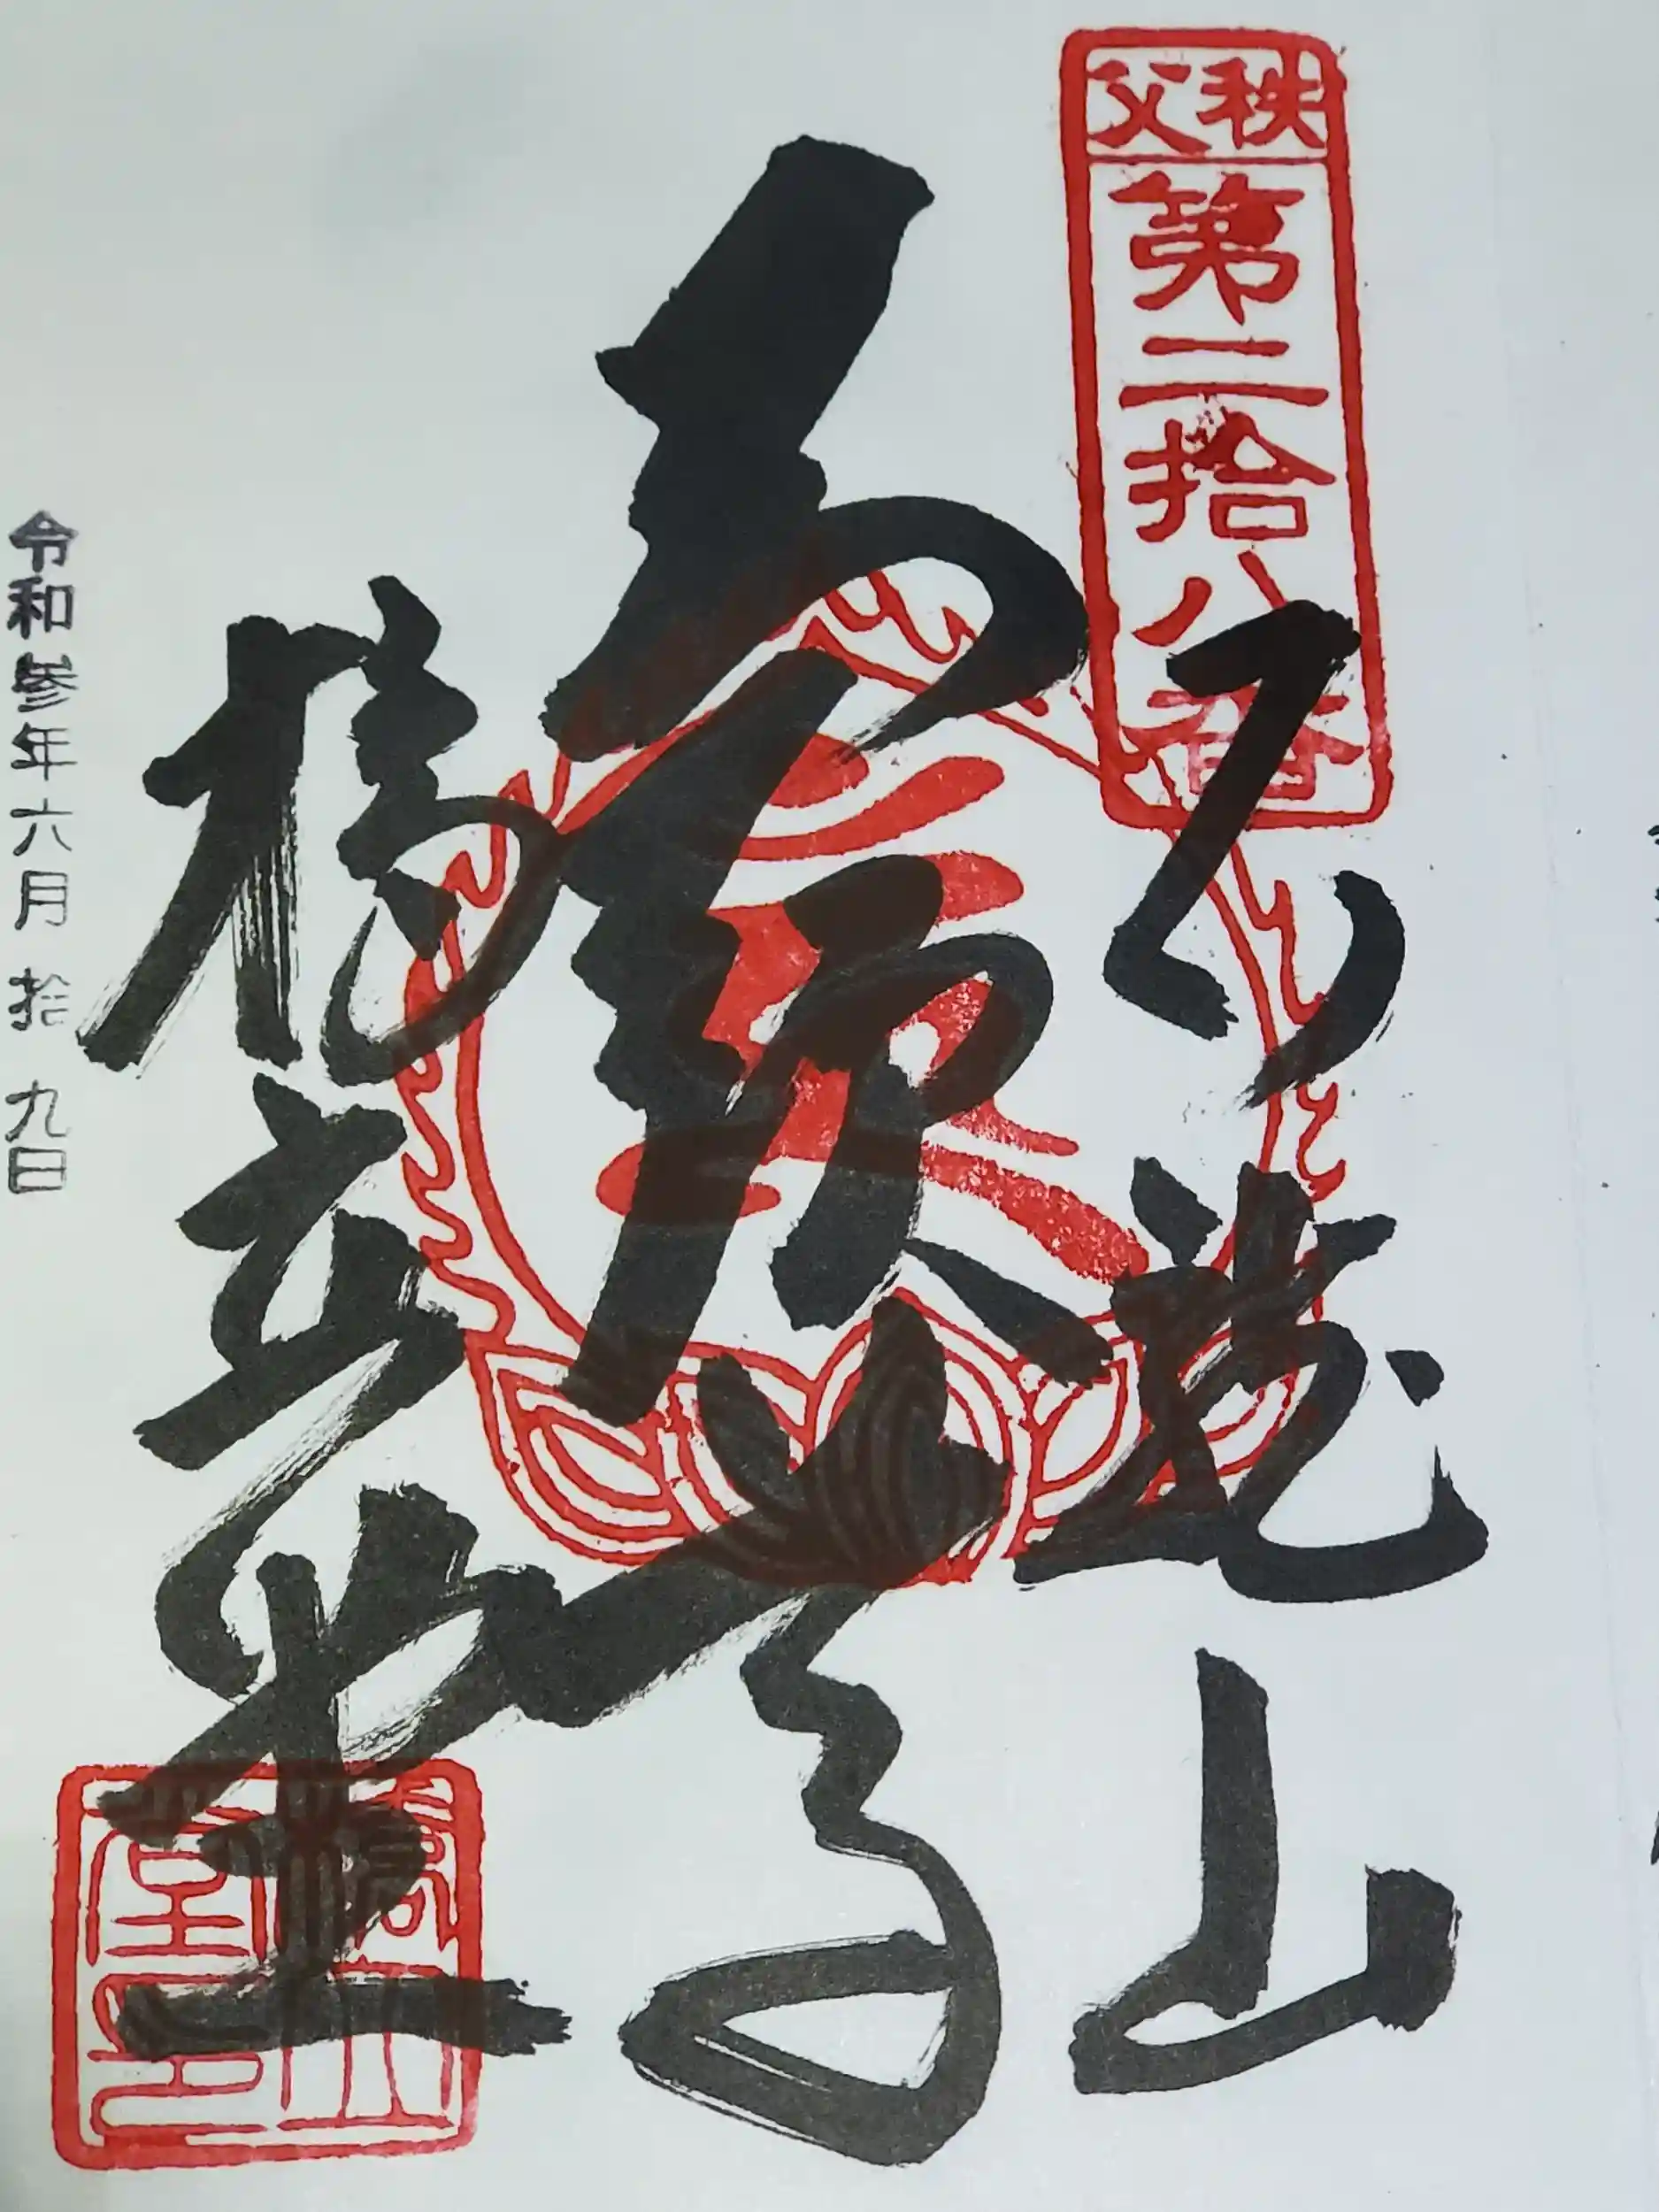 秩父
第二拾八番
石龍山
橋立堂
橋立堂印
令和参年六月拾九日